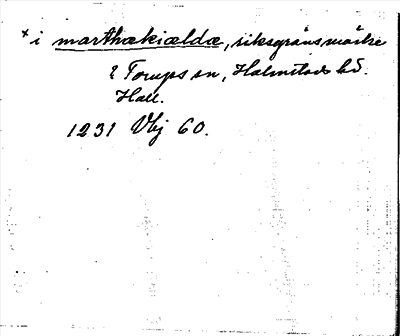 * i marthækiældæ, riksgränsmärke
? Torups sn, Halmstads hd.
Hall.
1231 Vbj 60.